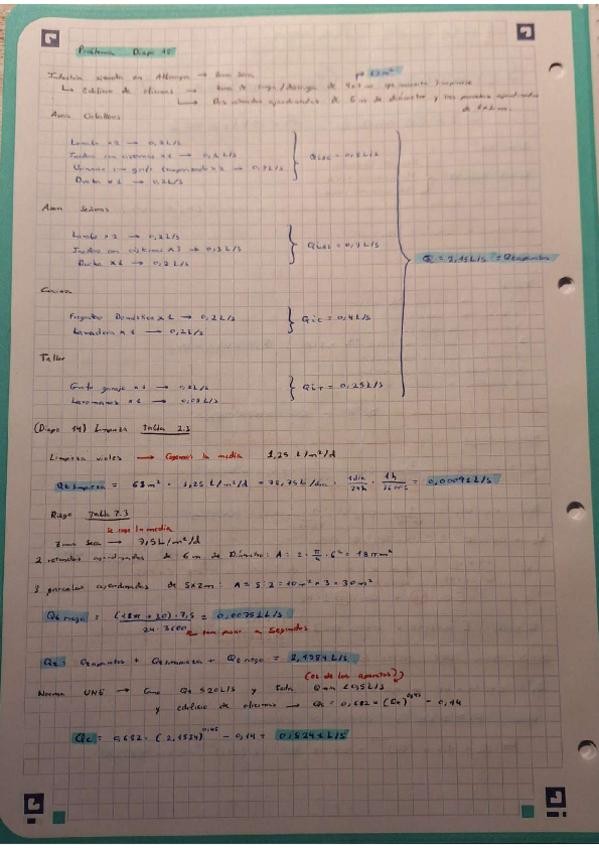 Problema Diapo 15
Industria situada en → Zona seca 63 m²
↳ Edificio de oficinas → zona de carga/descarga de 9x7m
↳ Dos rotondas ajardinadas de 6 m de diámetro y tres parcelas ajardinadas
de 5x2m.
Aseo Caballeros
Lavabo x 2 → 0,2 L/s
Inodoro con cisterna x 1 → 0,1 L/s
Urinario → grifo temporizado x 2 → 0,3 L/s
Ducha x 1 → 0,2 L/s
} = 0,8 L/s
Aseo Señoras
Lavabo x 2 → 0,2 L/s
Inodoro con cisterna x 3 → 0,3 L/s
Ducha x 1 → 0,2 L/s
} = 0,7 L/s
Q = 2,15 L/s = Qtaparatos
Cocina
Fregadero Doméstico x 1 → 0,2 L/s
Lavadora x 1 → 0,2 L/s
} Qic = 0,4 L/s
Taller
Grifo garaje x 1 → 0,2 L/s
Lavamanos x 1 → 0,05 L/s
} QiT = 0,25 L/s
(Diapo 14) Limpieza Tabla 2.3
Limpieza viales → Cogemos la media 1,25 L/m²/d
Qt limpieza = 63 m² · 1,25 L/m²/d = 78,75 L/día · 1día/24h · 1h/3600s = 0,00091 L/s
Riego Tabla 2.3
Se coge la media
Zona Seca → 7,5 L/m²/d
2 rotondas ajardinadas de 6 m de Diámetro: A = 2 · π/4 · 6² = 18π m²
3 parcelas ajardinadas de 5x2m: A = 5·2 = 10 m² x 3 = 30 m²
Qt riego = (18π + 30) · 7,5 / 24·3600 = 0,0075 L/s
para pasar a segundos
Qt = Qtaparatos + Qt limpieza + Qt riego = 2,1584 L/s
(Qs de los aparatos)
Norma UNE → Como Qt ≤ 20 L/s y todo Qmin < 0,5 L/s
y edificio de oficinas → Qc = 0,682 × (Qt)^0,45 − 0,14
Qc = 0,682 · (2,1584)^0,45 − 0,14 = 0,8241 L/s